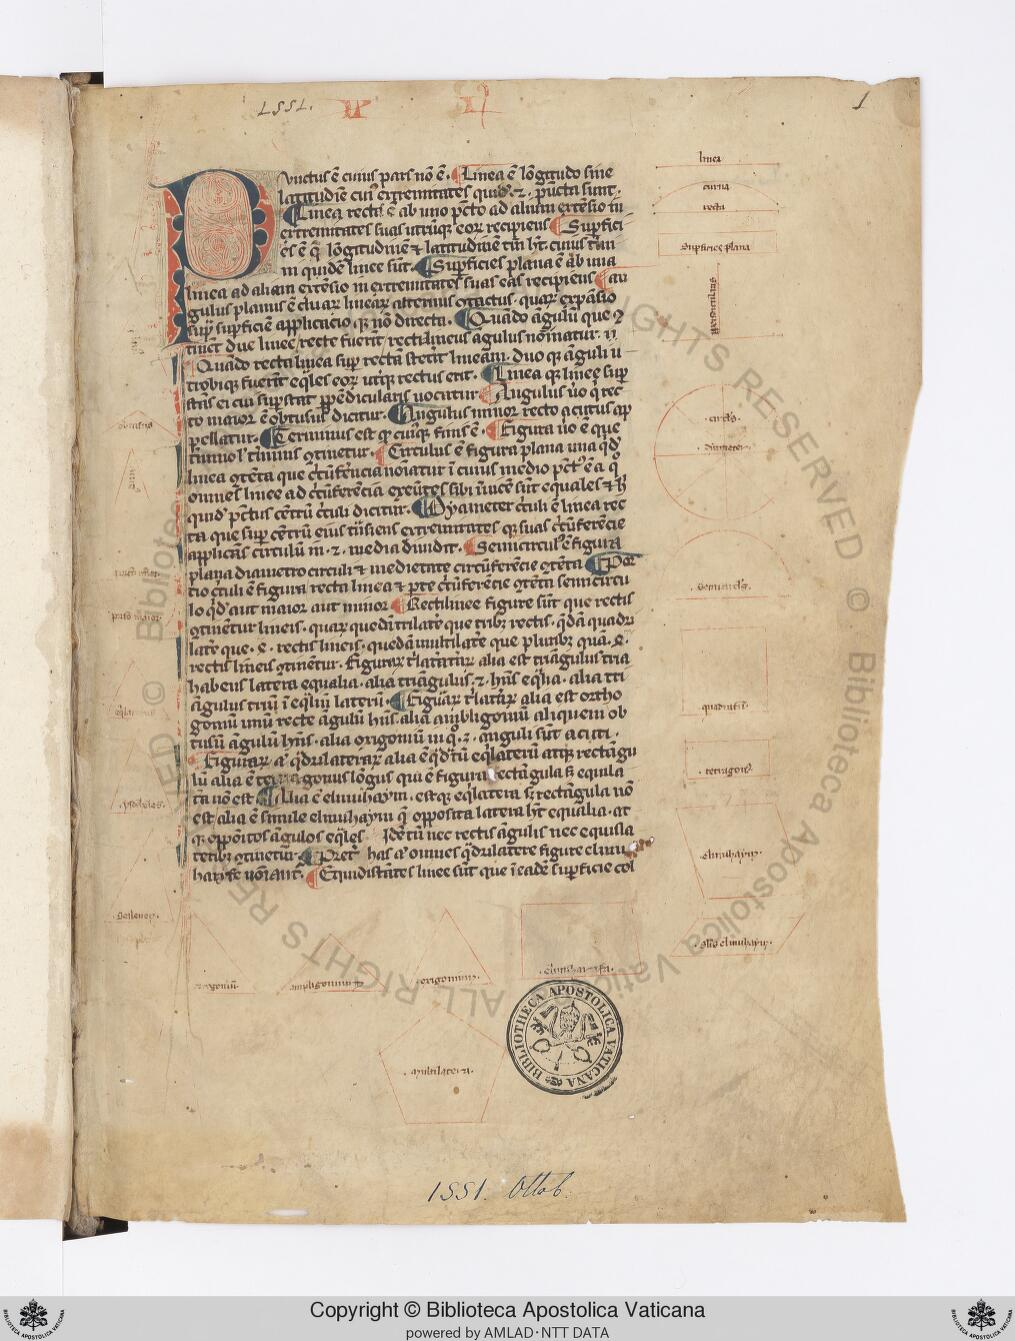 LSSL.
1
Punctus ē cuius pars nō ē. Linea ē lōgitudo sine
latitudīe cui' extremitates quidē .2. pūcta sunt.
Linea recta ē ab uno pūcto ad alium extēsio in
extremitates suas utrūqꝫ eoꝝ recipiens Supfici
es ē q̄ lōgitudinē ⁊ latitudinē tm̄ hꝫ cuius t'mi
ni quidē linee sūt. Supficies plana ē ab una
linea ad aliam extēsio in extremitates suas eas recipiens Au
gulus planus ē duaꝝ lineaꝝ alternus ꝯtactus. quaꝝ expāsio
sup supficiē applicatio qꝫ nō directa. Quādo āgulū que ꝯ
tinēt due linee recte fuerīt rectilineus āgulus nominatur.
Quādo recta linea sup rectā steterit lineam. duo qꝫ āguli u
trobiqꝫ fuerīt eq̄les eoꝝ utqꝫ rectus erit. Linea qꝫ linee sup
stās ei cui supstat ppēdicularis uocitur Angulus u̇o q̇ rec
to maior ē obtusus dicitur. Angulus minor recto acutus ap
pellatur. Terminus est qꝫ cuiqꝫ finis ē. Figura u̇o ē que
t'mino l' t'minis ꝯtinetur. Circulus ē figura plana una qdē
linea ꝯtēta que c̄cūfer̄ncia noīatur ī cuius medio pc̄t' ē a q̇
omnes linee ad c̄cūferēciā exeūtes sibi īuicē sūt equales ⁊ h'
quid' pc̄tus cētrū c̄culi dicitur. Dyameter c̄culi ē linea rec
ta que sup cētrū eius t̄nsiens extremitates qꝫ suas c̄cūferēcie
applicās circulū in .2. media diuidit. Semicirculus ē figura
plana diametro circuli ⁊ medietate circūferēcie ꝯtēta. Por
tio c̄culi ē figura recta linea ⁊ pte c̄cūferēcie ꝯtēta semicircu
lo qdē aut maior aut minor Rectilinee figure sūt que rectis
ꝯtinētur lineis. quaꝝ quedā t'latere que tribꝫ rectis. q̄dā quadri
latere que .4. rectis lineis. quedā multilatere que pluribꝫ quā .4.
rectis lineis ꝯtinētur. Figuraꝝ t'lateraꝝ alia est triāgulus tria
habens latera equalia. alia triāgulus .2. hn̄s eq̄lia. alia tri
āgulus triū ī eq̄liū lateꝝ. Figuraꝝ t'lateraꝝ alia est ortho
gonium unū rectū āgulū hn̄s. alia ambligoniū aliquem ob
tusū āgulū hn̄s. alia oxigoniū in q̇ .3. anguli sūt acuti.
Figuraꝝ at̄ q̄drilateraꝝ alia ē q̄dratū eq̄laterū atqꝫ rectāgu
lū alia ē tetragonus lōgus qui ē figura rectāgula sꝫ equila
t'a nō est Alia ē elmuhaym. estqꝫ eq̄latera sꝫ rectāgula nō
est alia ē simile elmuhaym q̄ opposita latera hꝫ equalia. at
qꝫ oppositos āgulos eq̄les. Idē tū nec rectis āgulis nec equis la
teribꝫ ꝯtinetur. Pret' has at̄ omnes q̄drilatere figure elmu
harife noīant'. Equidistātes linee sūt que ī eadē supficie col
linea
curua
recta
Supficies plana
ppēdicularis
circulus
diameter
Semicirculus
quadratū
tetragonus
elmuhaym
similis elmuhaym
elmuharifa
oxigonium
ampligonium
ortogoniū
multilatera
obtusus
acutus
portio minor
portio maior
eq̄laterus
ysocheles
scalenon
1551. Ottob.
BIBLIOTHECA APOSTOLICA VATICANA
© Biblioteca Apostolica Vaticana ALL RIGHTS RESERVED © Biblioteca Apostolica Vaticana ALL RIGHTS RESERVED
Copyright © Biblioteca Apostolica Vaticana
powered by AMLAD・NTT DATA
BIBLIOTECA APOSTOLICA VATICANA
BIBLIOTECA APOSTOLICA VATICANA